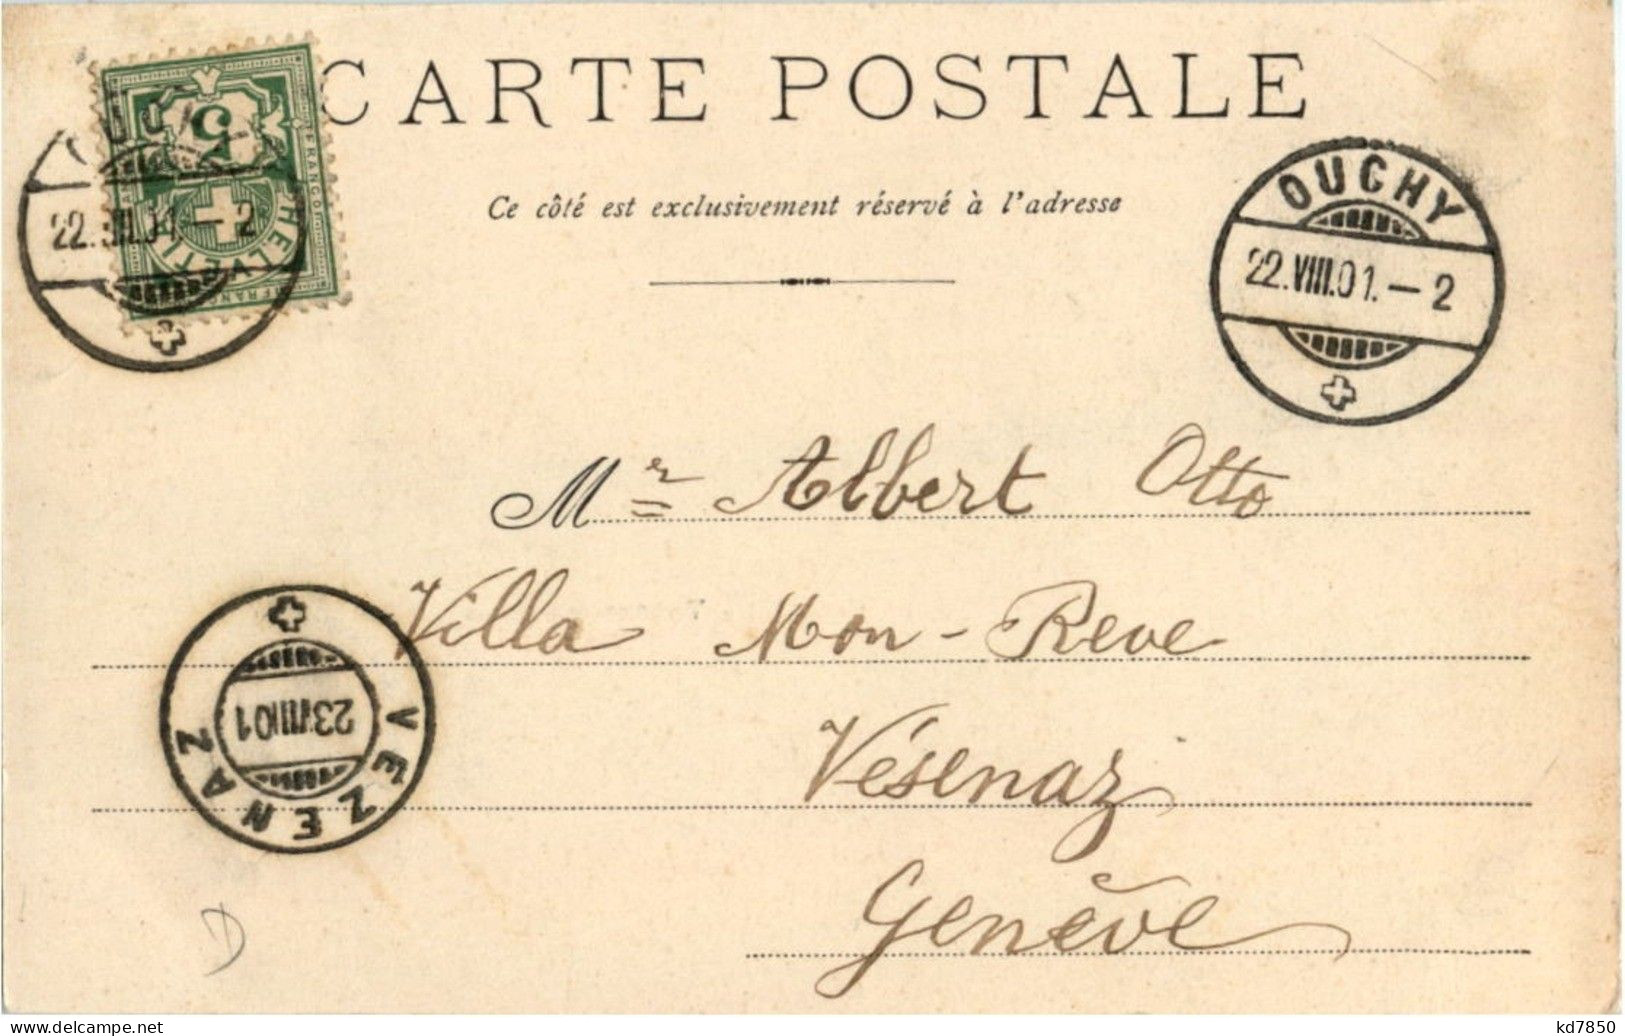 CARTE POSTALE
Ce côté est exclusivement réservé à l'adresse
5
FRANCO
HELVETIA
FRANCO
22.VIII.01–2
OUCHY
22.VIII.01.–2
Mr Albert Otto
Villa Mon-Reve
Vésenaz
Genève
VEZENAZ
23 VIII 01
D
kd7850